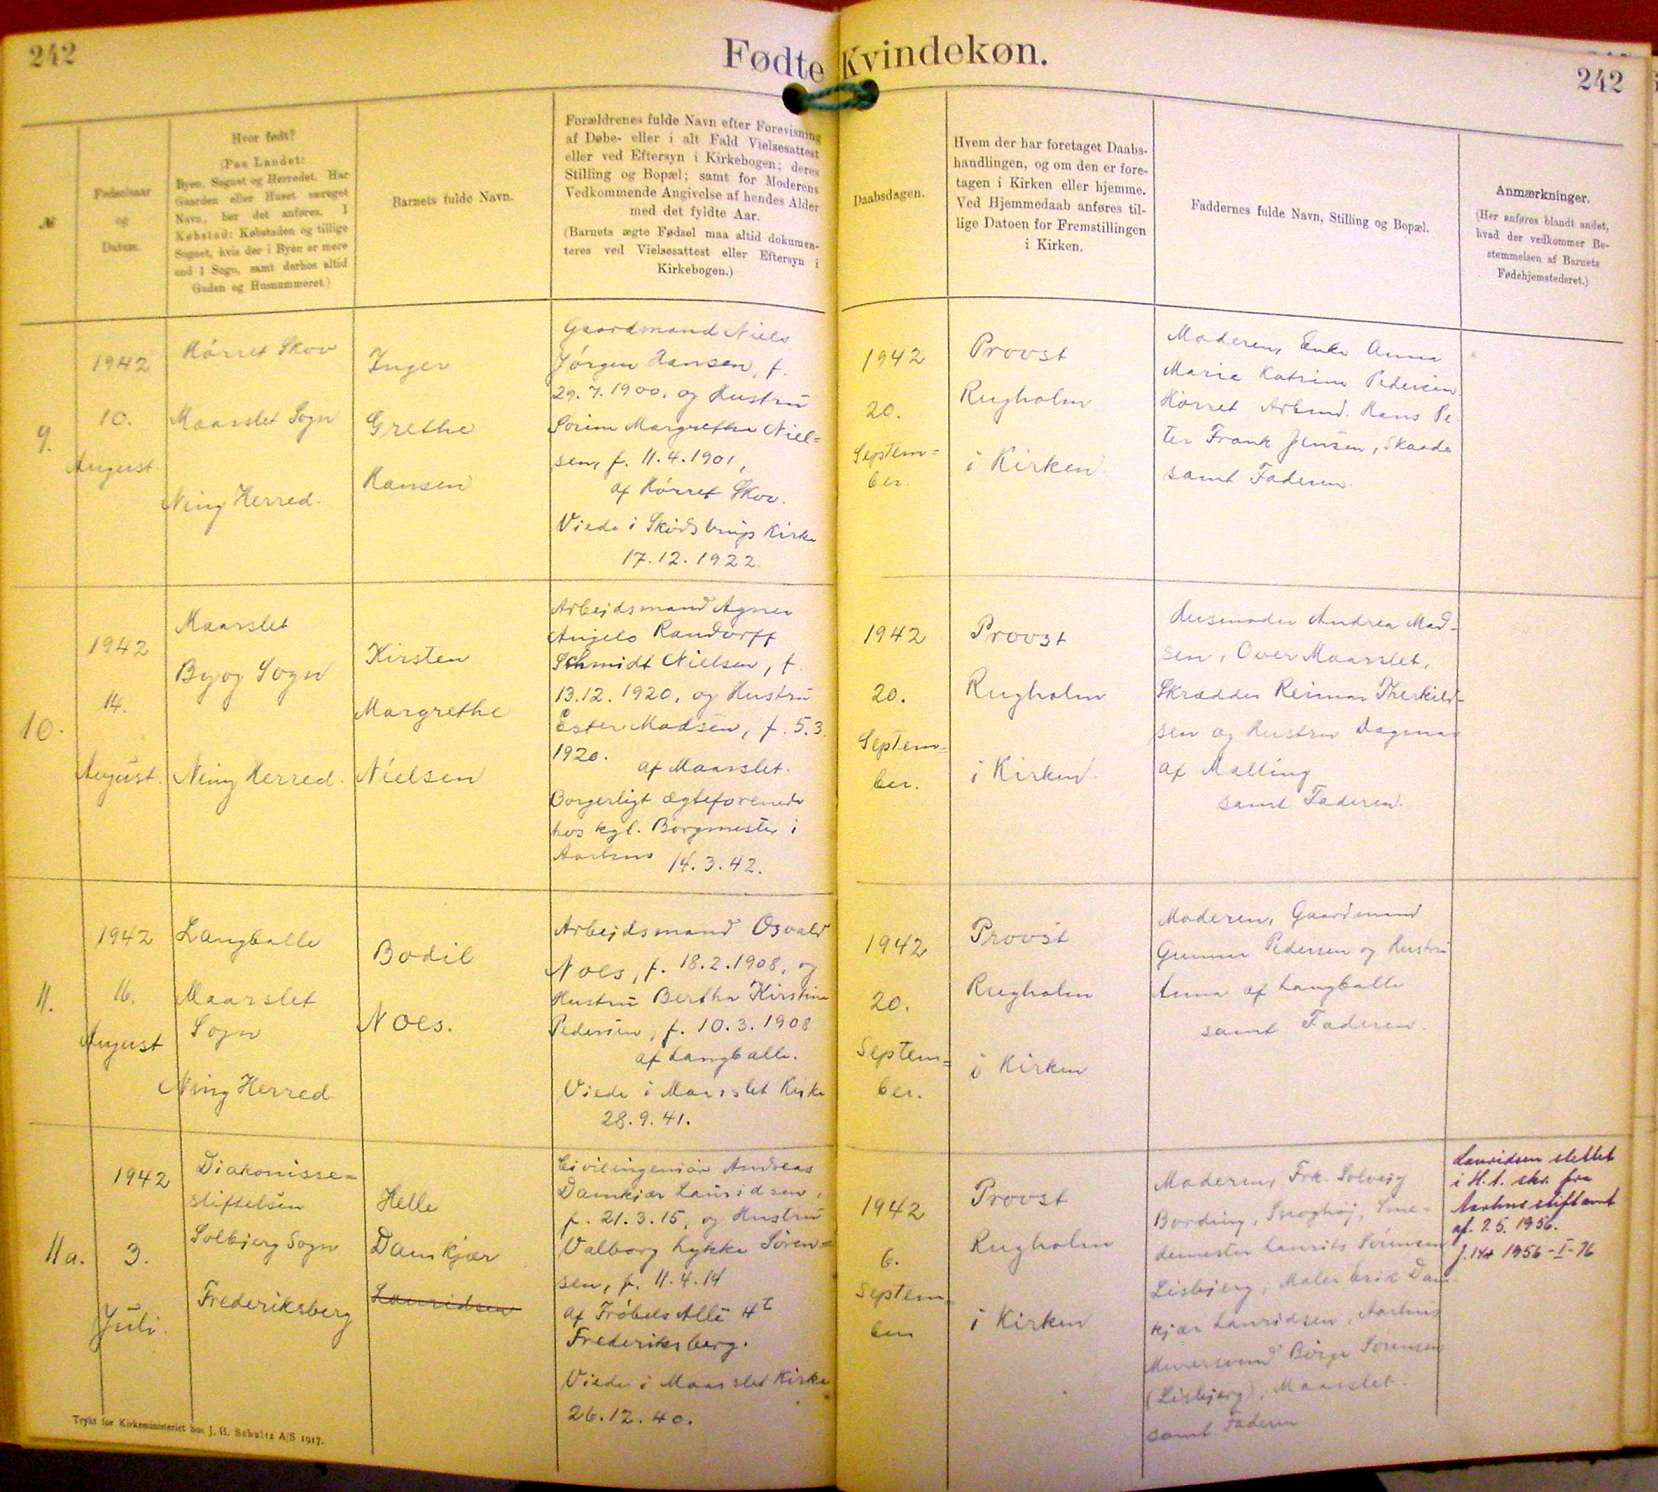 242
Fødte Kvindekøn.
242
№
Fødselsaar
og
Datum.
Hvor født?
(Paa Landet:
Byen, Sognet og Herredet. Har
Gaarden eller Huset særeget
Navn, bør det anføres. I
Købstad: Købstaden og tillige
Sognet, hvis der i Byen er mere
end 1 Sogn, samt derhos altid
Gaden og Husnummeret.)
Barnets fulde Navn.
Forældrenes fulde Navn efter Forevisning
af Døbe- eller i alt Fald Vielsesattest
eller ved Eftersyn i Kirkebogen; deres
Stilling og Bopæl; samt for Moderens
Vedkommende Angivelse af hendes Alder
med det fyldte Aar.
(Barnets ægte Fødsel maa altid dokumen-
teres ved Vielsesattest eller Eftersyn i
Kirkebogen.)
Daabsdagen.
Hvem der har foretaget Daabs-
handlingen, og om den er fore-
tagen i Kirken eller hjemme.
Ved Hjemmedaab anføres til-
lige Datoen for Fremstillingen
i Kirken.
Faddernes fulde Navn, Stilling og Bopæl.
Anmærkninger.
(Her anføres blandt andet,
hvad der vedkommer Be-
stemmelsen af Barnets
Fødehjemstederet.)
9.
1942
10.
August.
Hørret Skov
Maarslet Sogn
Ning Herred.
Inger
Grethe
Hansen
Gaardmand Niels
Jørgen Hansen, f.
29.7.1900, og Hustru
Sørine Margrethe Niel=
sen, f. 11.4.1901,
af Hørret Skov.
Viede i Skødstrup Kirke
17.12.1922.
1942
20.
Septem=
ber.
Provst
Rugholm
i Kirken.
Moderen, Enke Anna
Marie Katrine Pedersen
Hørret Arbmd. Hans Pe-
ter Frank Jensen, Skaade
samt Faderen.
10.
1942
14.
August.
Maarslet
By og Sogn
Ning Herred.
Kirsten
Margrethe
Nielsen
Arbejdsmand Agner
Angelo Randorff
Schmidt Nielsen, f.
13.12.1920, og Hustru
Ester Madsen, f. 5.3.
1920.
af Maarslet.
Borgerligt ægteforenede
hos kgl. Borgmester i
Aarhus 14.3.42.
1942
20.
Septem=
ber.
Provst
Rugholm
i Kirken.
Husmoder Andrea Mad-
sen, Over Maarslet,
Skrædder Reimar Therkild-
sen og Hustru Dagmar
af Malling
samt Faderen.
11.
1942
16.
August
Langballe
Maarslet
Sogn
Ning Herred
Bodil
Noes.
Arbejdsmand Osvald
Noes, f. 18.2.1908, og
Hustru Bertha Kirstine
Pedersen, f. 10.3.1908
af Langballe.
Viede i Maarslet Kirke
28.9.41.
1942
20.
Septem=
ber.
Provst
Rugholm
i Kirken
Moderen, Gaardmand
Gunnar Pedersen og Hustru
Anna af Langballe
samt Faderen.
11a.
1942
3.
Juli.
Diakonisse=
stiftelsen
Solbjerg Sogn
Frederiksberg
Helle
Damkjær
Lauridsen
Civilingeniør Andreas
Damkjær Lauridsen,
f. 21.3.15, og Hustru
Valborg Lykke Søren=
sen, f. 11.4.14
af Frøbels Alle 4
Frederiksberg.
Viede i Maarslet Kirke
26.12.40.
1942
6.
Septem-
ber
Provst
Rugholm
i Kirken
Moderen, Frk. Solveig
Bording, Snoghøj, Sme-
demester Laurits Sørensen
Lisbjerg, Maler Erik Dam-
kjær Lauridsen, Aarhus
Murersvend Børge Sørensen
(Lisbjerg), Maarslet.
samt Faderen
Lauridsen slettet
i H. t. skr. fra
Aarhus stiftamt
af 2.5.1956.
1956-I-76
Trykt for Kirkeministeriet hos J. H. Schultz A/S 1917.